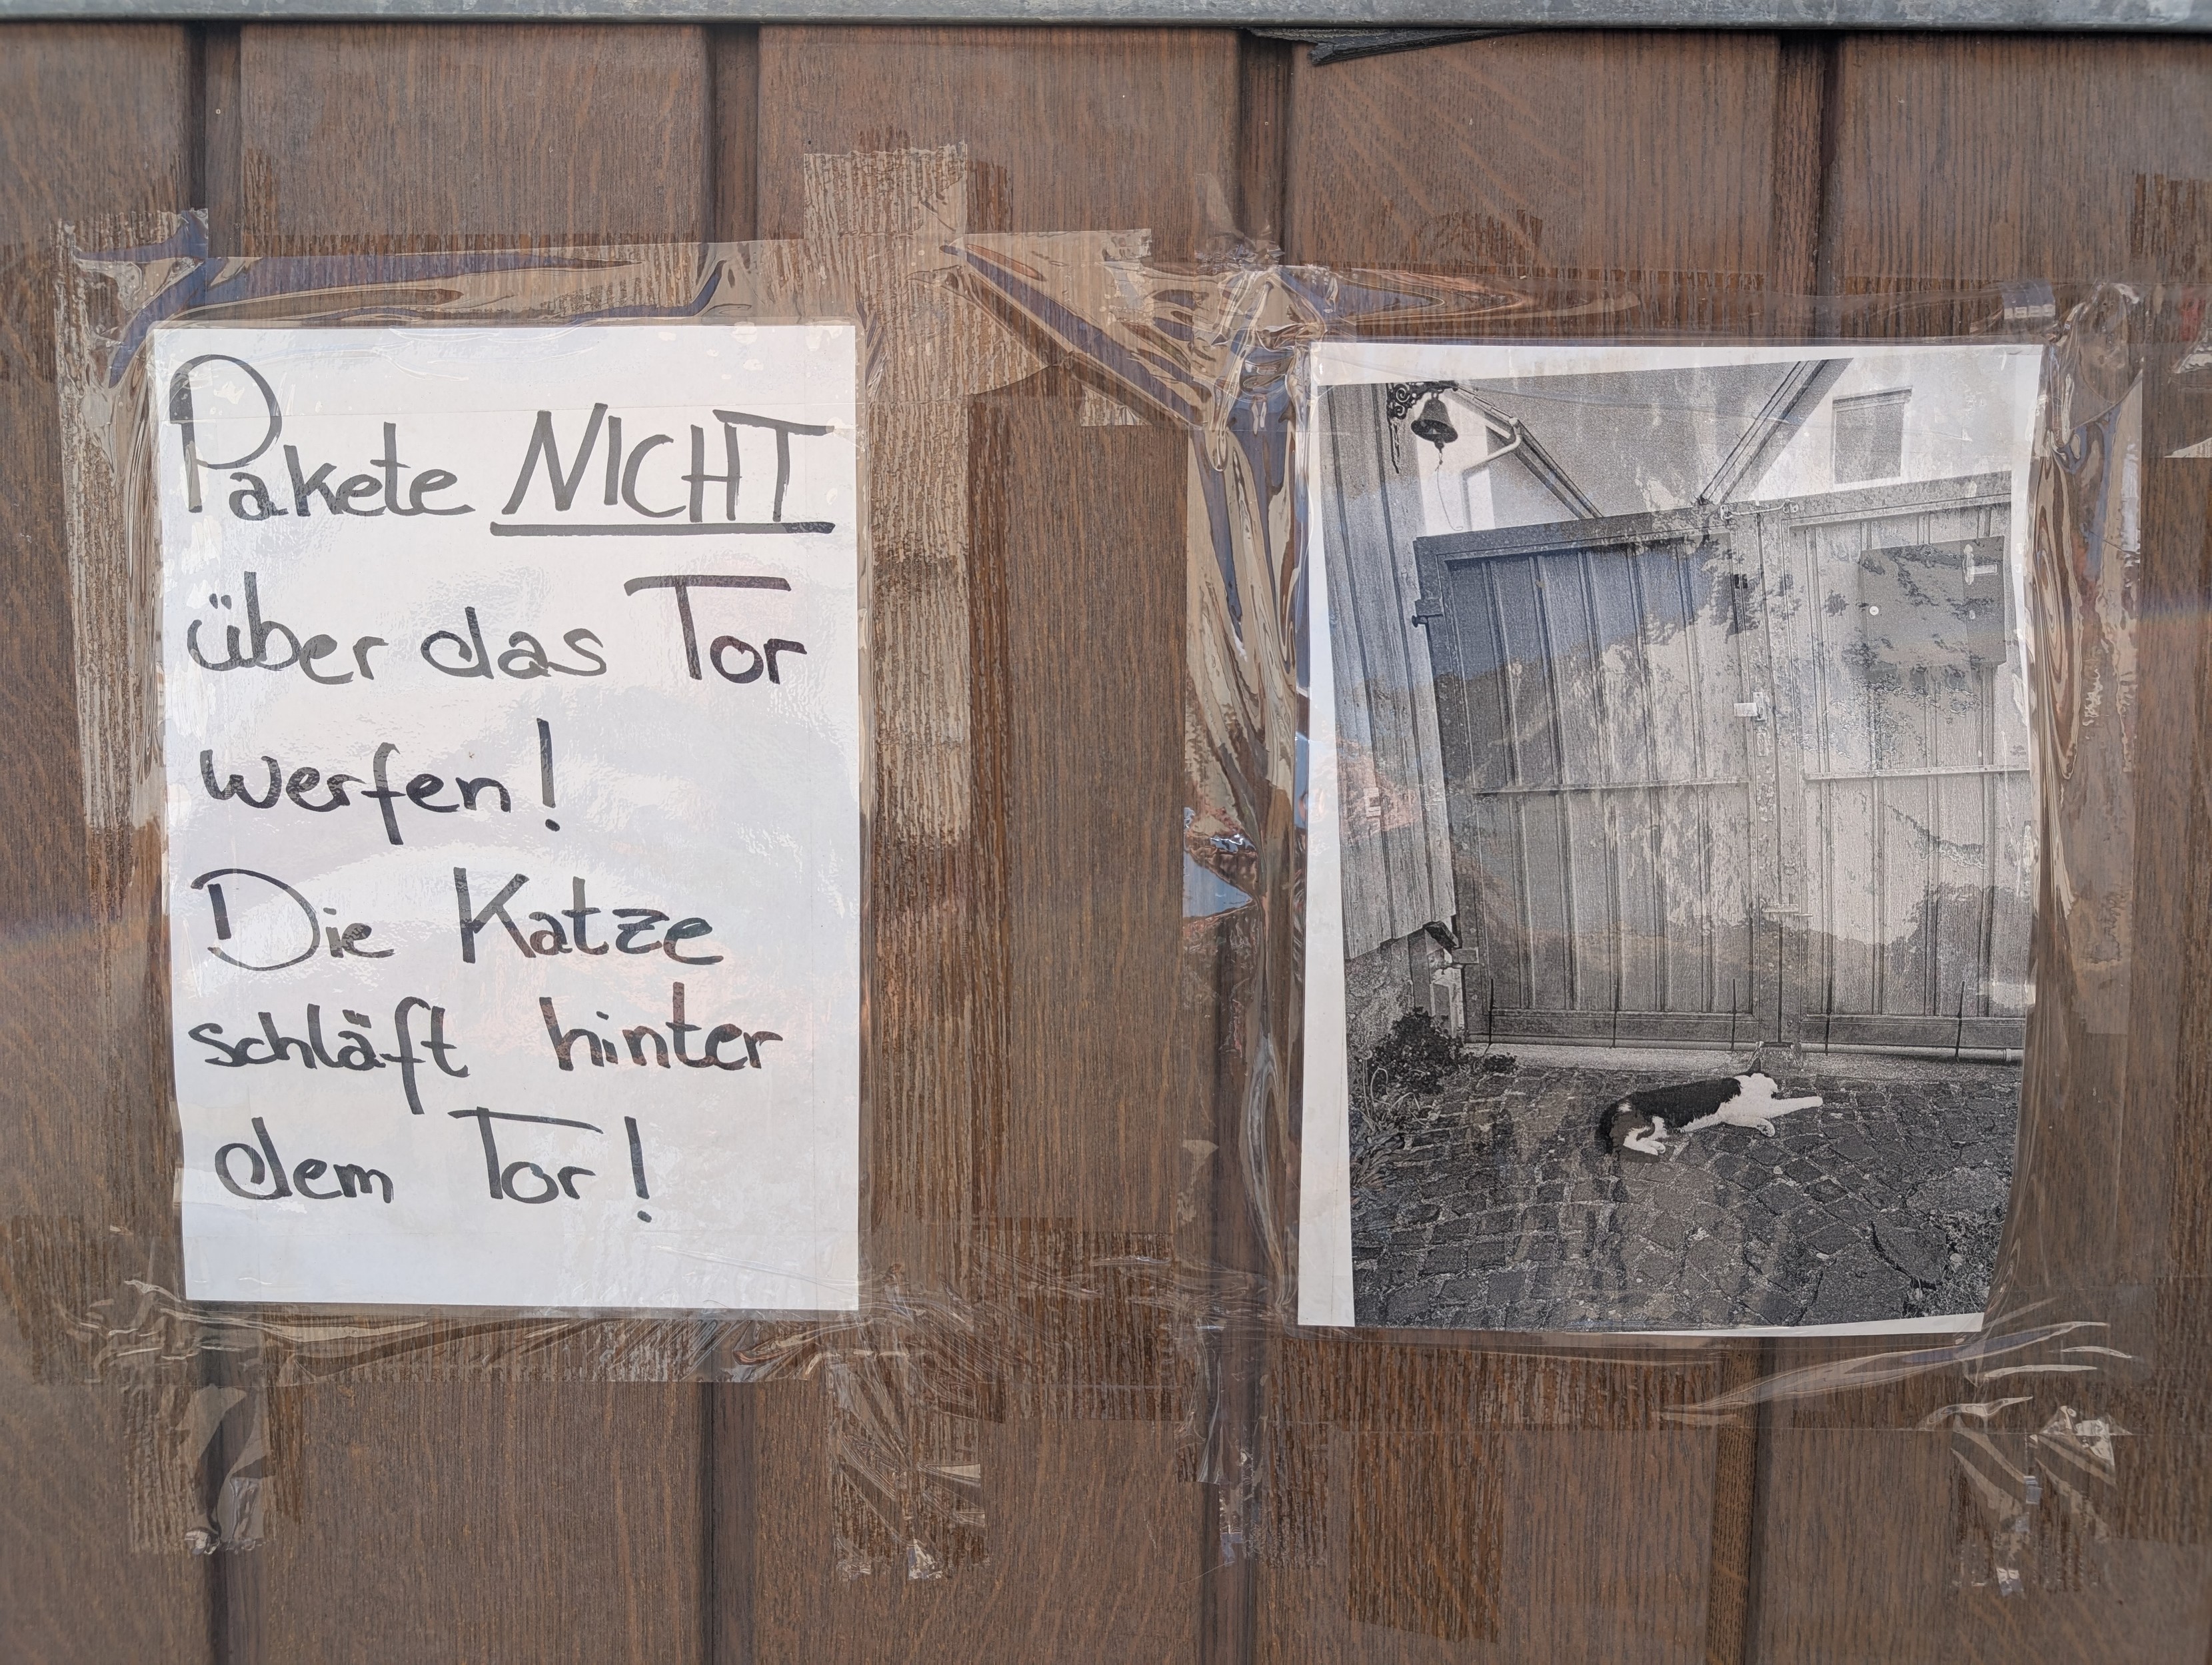 Pakete NICHT
über das Tor
werfen!
Die Katze
schläft hinter
dem Tor!